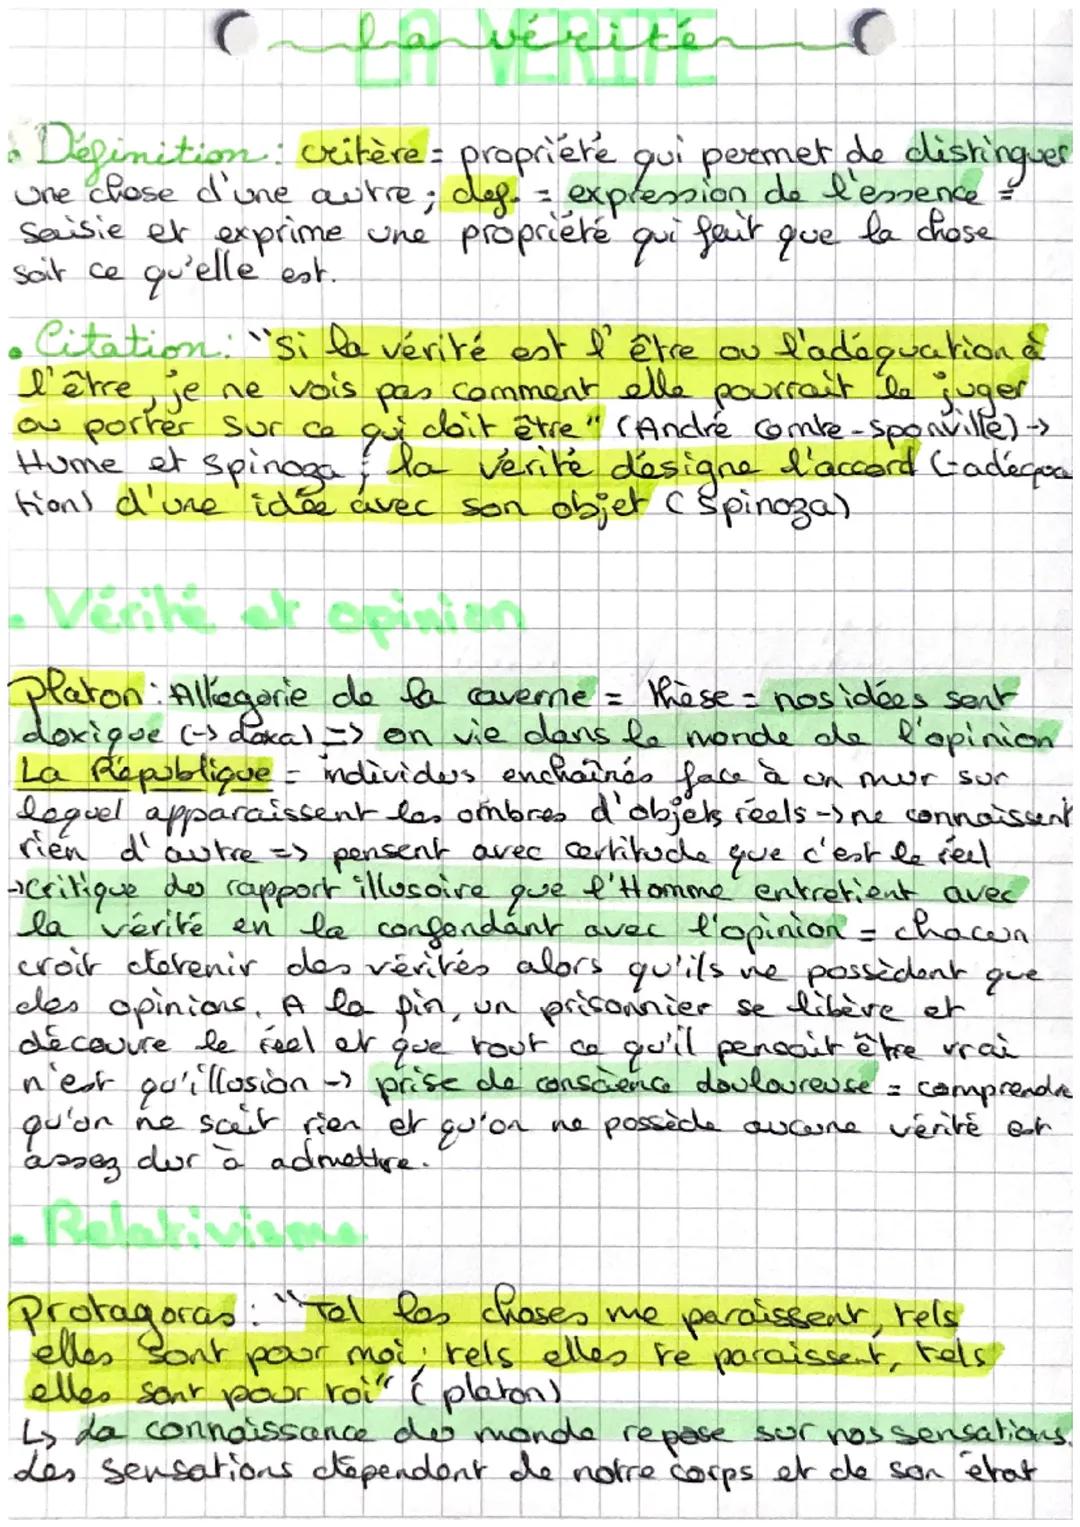 La vérité
LA VÉRITÉ
• Définition : critère = propriété qui permet de distinguer
une chose d'une autre ; def. = expression de l'essence =
saisie et exprime une propriété qui fait que la chose
soit ce qu'elle est.
• Citation : "Si la vérité est l'être ou l'adéquation à
l'être, je ne vois pas comment elle pourrait le juger
ou porter sur ce qui doit être" (André Comte-Sponville) ->
Hume et Spinoza ; la vérité désigne l'accord (=adéqua
tion) d'une idée avec son objet (Spinoza)
• Vérité et opinion
Platon : Allégorie de la caverne = thèse = nos idées sont
doxique (-> doxa) => on vie dans le monde de l'opinion
La République = individus enchaînés face à un mur sur
lequel apparaissent les ombres d'objets réels -> ne connaissent
rien d'autre => pensent avec certitude que c'est le réel
-> critique du rapport illusoire que l'Homme entretient avec
la vérité en la confondant avec l'opinion = chacun
croit detenir des vérités alors qu'ils ne possèdent que
des opinions. A la fin, un prisonnier se libère et
découvre le réel et que tout ce qu'il pensait être vrai
n'est qu'illusion -> prise de conscience douloureuse = comprendre
qu'on ne sait rien et qu'on ne possède aucune vérité est
assez dur à admettre.
• Relativisme
Protagoras : "Tel les choses me paraissent, tels
elles sont pour moi ; tels elles te paraissent, tels
elles sont pour toi" (platon)
↳ La connaissance du monde repose sur nos sensations.
Les sensations dépendent de notre corps et de son état